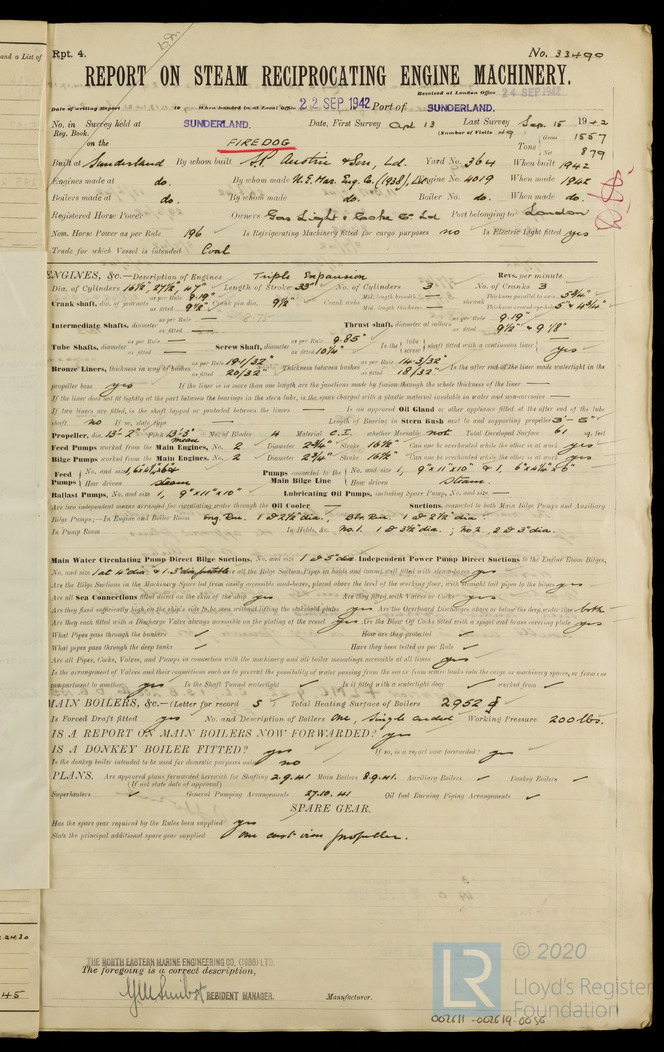 and a List of
Rpt. 4.
No. 33490
REPORT ON STEAM RECIPROCATING ENGINE MACHINERY.
Received at London Office 24 SEP. 1942
Date of writing Report 19 When handed in at Local Office 22 SEP 1942 Port of SUNDERLAND.
No. in Survey held at SUNDERLAND. Date, First Survey April 13 Last Survey Sep. 15 1942
Reg. Book. (Number of Visits 49)
on the FIREDOG Tons Gross 1557 Net 879
Built at Sunderland By whom built S.P. Austin & Son, Ld. Yard No. 364 When built 1942
Engines made at do. By whom made N.E. Mar. Eng. Co. (1938), Ltd Engine No. 4019 When made 1942
Boilers made at do. By whom made do. Boiler No. do. When made do.
Registered Horse Power Owners Gas Light & Coke Co Ld Port belonging to London
Nom. Horse Power as per Rule 196 Is Refrigerating Machinery fitted for cargo purposes no Is Electric Light fitted yes
Trade for which Vessel is intended Coal
ENGINES, &c.—Description of Engines Triple Expansion Revs. per minute
Dia. of Cylinders 16½", 27½", 47" Length of Stroke 33" No. of Cylinders 3 No. of Cranks 3
Crank shaft, dia. of journals as per Rule 9.19" as fitted 9½" Crank pin dia. 9½" Crank webs Mid. length breadth — Mid. length thickness — shrunk Thickness parallel to axis 5¾" Thickness around eye-hole 5" & 4¾"
Intermediate Shafts, diameter as per Rule — as fitted — Thrust shaft, diameter at collars as per Rule 9.19" as fitted 9½" & 9⅛"
Tube Shafts, diameter as per Rule — as fitted — Screw Shaft, diameter as per Rule 9.85" as fitted 10¼" Is the tube screw shaft fitted with a continuous liner yes
Bronze Liners, thickness in way of bushes as per Rule 19.1/32" as fitted 20/32" Thickness between bushes as per Rule 14.3/32" as fitted 18/32" Is the after end of the liner made watertight in the
propeller boss yes If the liner is in more than one length are the junctions made by fusion through the whole thickness of the liner —
If the liner does not fit tightly at the part between the bearings in the stern tube, is the space charged with a plastic material insoluble in water and non-corrosive —
If two liners are fitted, is the shaft lapped or protected between the liners — Is an approved Oil Gland or other appliance fitted at the after end of the tube
shaft no If so, state type — Length of Bearing in Stern Bush next to and supporting propeller 3'-6"
Propeller, dia. 13'-2" Pitch 13'-3" mean No. of Blades 4 Material C.I. whether Moveable not Total Developed Surface 61 sq. feet
Feed Pumps worked from the Main Engines, No. 2 Diameter 2¾" Stroke 16½" Can one be overhauled while the other is at work yes
Bilge Pumps worked from the Main Engines, No. 2 Diameter 2¾" Stroke 16½" Can one be overhauled while the other is at work yes
Feed Pumps No. and size How driven steam Pumps connected to the Main Bilge Line No. and size 1, 9"x11"x10" & 1, How driven steam.
Ballast Pumps, No. and size 1, 9"x11"x10" Lubricating Oil Pumps, including Spare Pump, No. and size —
Are two independent means arranged for circulating water through the Oil Cooler — Suctions, connected to both Main Bilge Pumps and Auxiliary
Bilge Pumps;—In Engine and Boiler Room Eng. Rm. 1 @ 2½" dia., Blr. Rm. 1 @ 2½" dia.
In Pump Room — In Holds, &c. No.1. 1 @ 3½" dia; no.2. 2 @ 3" dia.
Main Water Circulating Pump Direct Bilge Suctions, No. and size 1 @ 5" dia Independent Power Pump Direct Suctions to the Engine Room Bilges,
No. and size 1 at 4" dia. Are all the Bilge Suction Pipes in holds and tunnel well fitted with strum-boxes yes
Are the Bilge Suctions in the Machinery Space led from easily accessible mud-boxes, placed above the level of the working floor, with straight tail pipes to the bilges yes
Are all Sea Connections fitted direct on the skin of the ship yes Are they fitted with Valves or Cocks yes
Are they fixed sufficiently high on the ship's side to be seen without lifting the stokehold plates yes Are the Overboard Discharges above or below the deep water line both
Are they each fitted with a Discharge Valve always accessible on the plating of the vessel yes Are the Blow Off Cocks fitted with a spigot and brass covering plate yes
What Pipes pass through the bunkers ✓ How are they protected ✓
What pipes pass through the deep tanks ✓ Have they been tested as per Rule ✓
Are all Pipes, Cocks, Valves, and Pumps in connection with the machinery and all boiler mountings accessible at all times yes
Is the arrangement of Valves and their connections such as to prevent the possibility of water passing from the sea or from water tanks into the cargo or machinery spaces, or from one
compartment to another yes Is the Shaft Tunnel watertight ✓ Is it fitted with a watertight door ✓ worked from ✓
MAIN BOILERS, &c.—(Letter for record S Total Heating Surface of Boilers 2952
Is Forced Draft fitted yes No. and Description of Boilers One, single ended Working Pressure 200 lbs.
IS A REPORT ON MAIN BOILERS NOW FORWARDED? yes
IS A DONKEY BOILER FITTED? yes If so, is a report now forwarded? yes
Is the donkey boiler intended to be used for domestic purposes only no
PLANS. Are approved plans forwarded herewith for Shafting 2.9.41. Main Boilers 8.9.41. Auxiliary Boilers ✓ Donkey Boilers ✓
(If not state date of approval)
Superheaters ✓ General Pumping Arrangements 27.10.41 Oil fuel Burning Piping Arrangements ✓
SPARE GEAR.
Has the spare gear required by the Rules been supplied yes
State the principal additional spare gear supplied One cast iron propeller.
THE NORTH EASTERN MARINE ENGINEERING CO. (1938) LTD.
The foregoing is a correct description,
RESIDENT MANAGER. Manufacturer.
© 2020
Lloyd's Register
Foundation
LR
002611-002619-0056